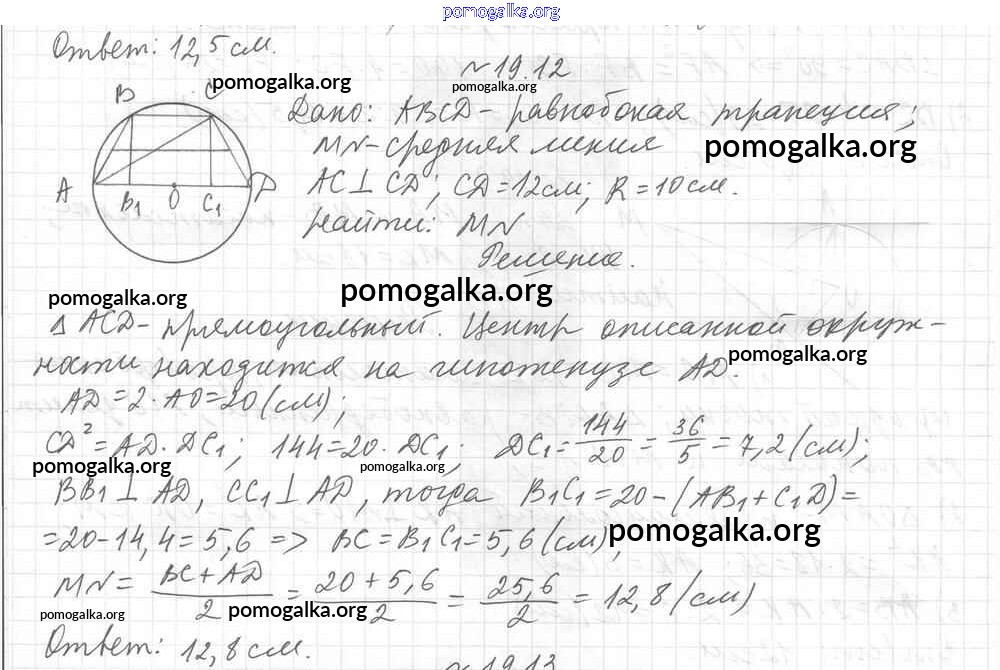 pomogalka.org
Ответ: 12,5 см.
№19.12
pomogalka.org
pomogalka.org
B C
Дано: ABCD - равнобокая трапеция;
MN - средняя линия
pomogalka.org
A B₁ O C₁ D
AC ⊥ CD; CD = 12 см; R = 10 см.
Найти: MN
Решение.
pomogalka.org
pomogalka.org
Δ ACD - прямоугольный. Центр описанной окруж-
ности находится на гипотенузе AD.
pomogalka.org
AD = 2 · AO = 20 (см);
CD² = AD · DC₁; 144 = 20 · DC₁; DC₁ = 144/20 = 36/5 = 7,2 (см);
pomogalka.org
pomogalka.org
BB₁ ⊥ AD, CC₁ ⊥ AD, тогда B₁C₁ = 20 - (AB₁ + C₁D) =
= 20 - 14,4 = 5,6 => BC = B₁C₁ = 5,6 (см);
pomogalka.org
MN = BC + AD/2 = 20 + 5,6/2 = 25,6/2 = 12,8 (см)
pomogalka.org
pomogalka.org
Ответ: 12,8 см.
№19.13